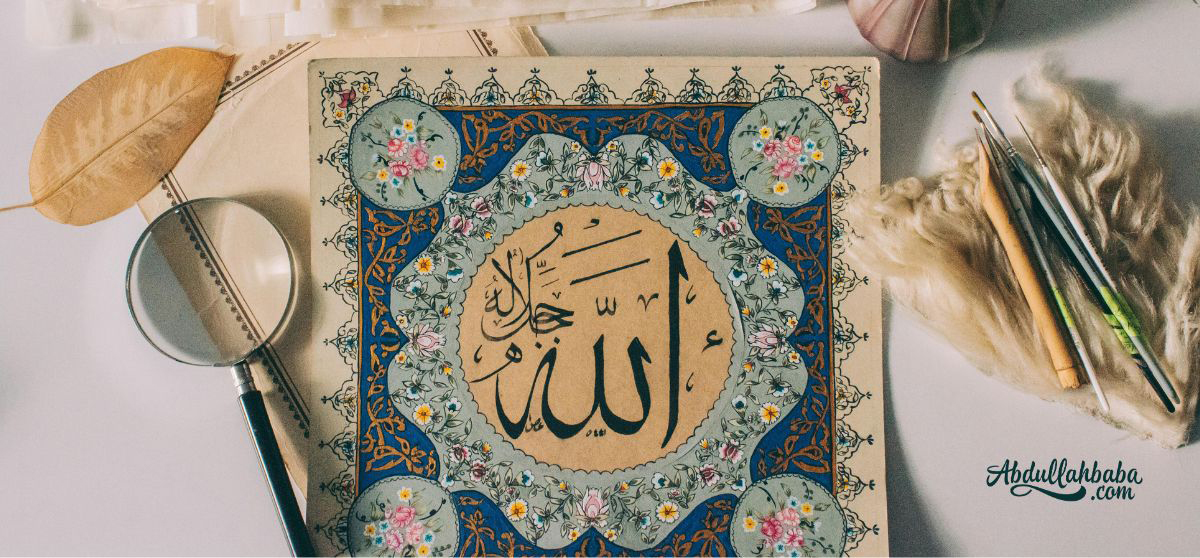 الله
جل جلاله
Abdullahbaba
.com